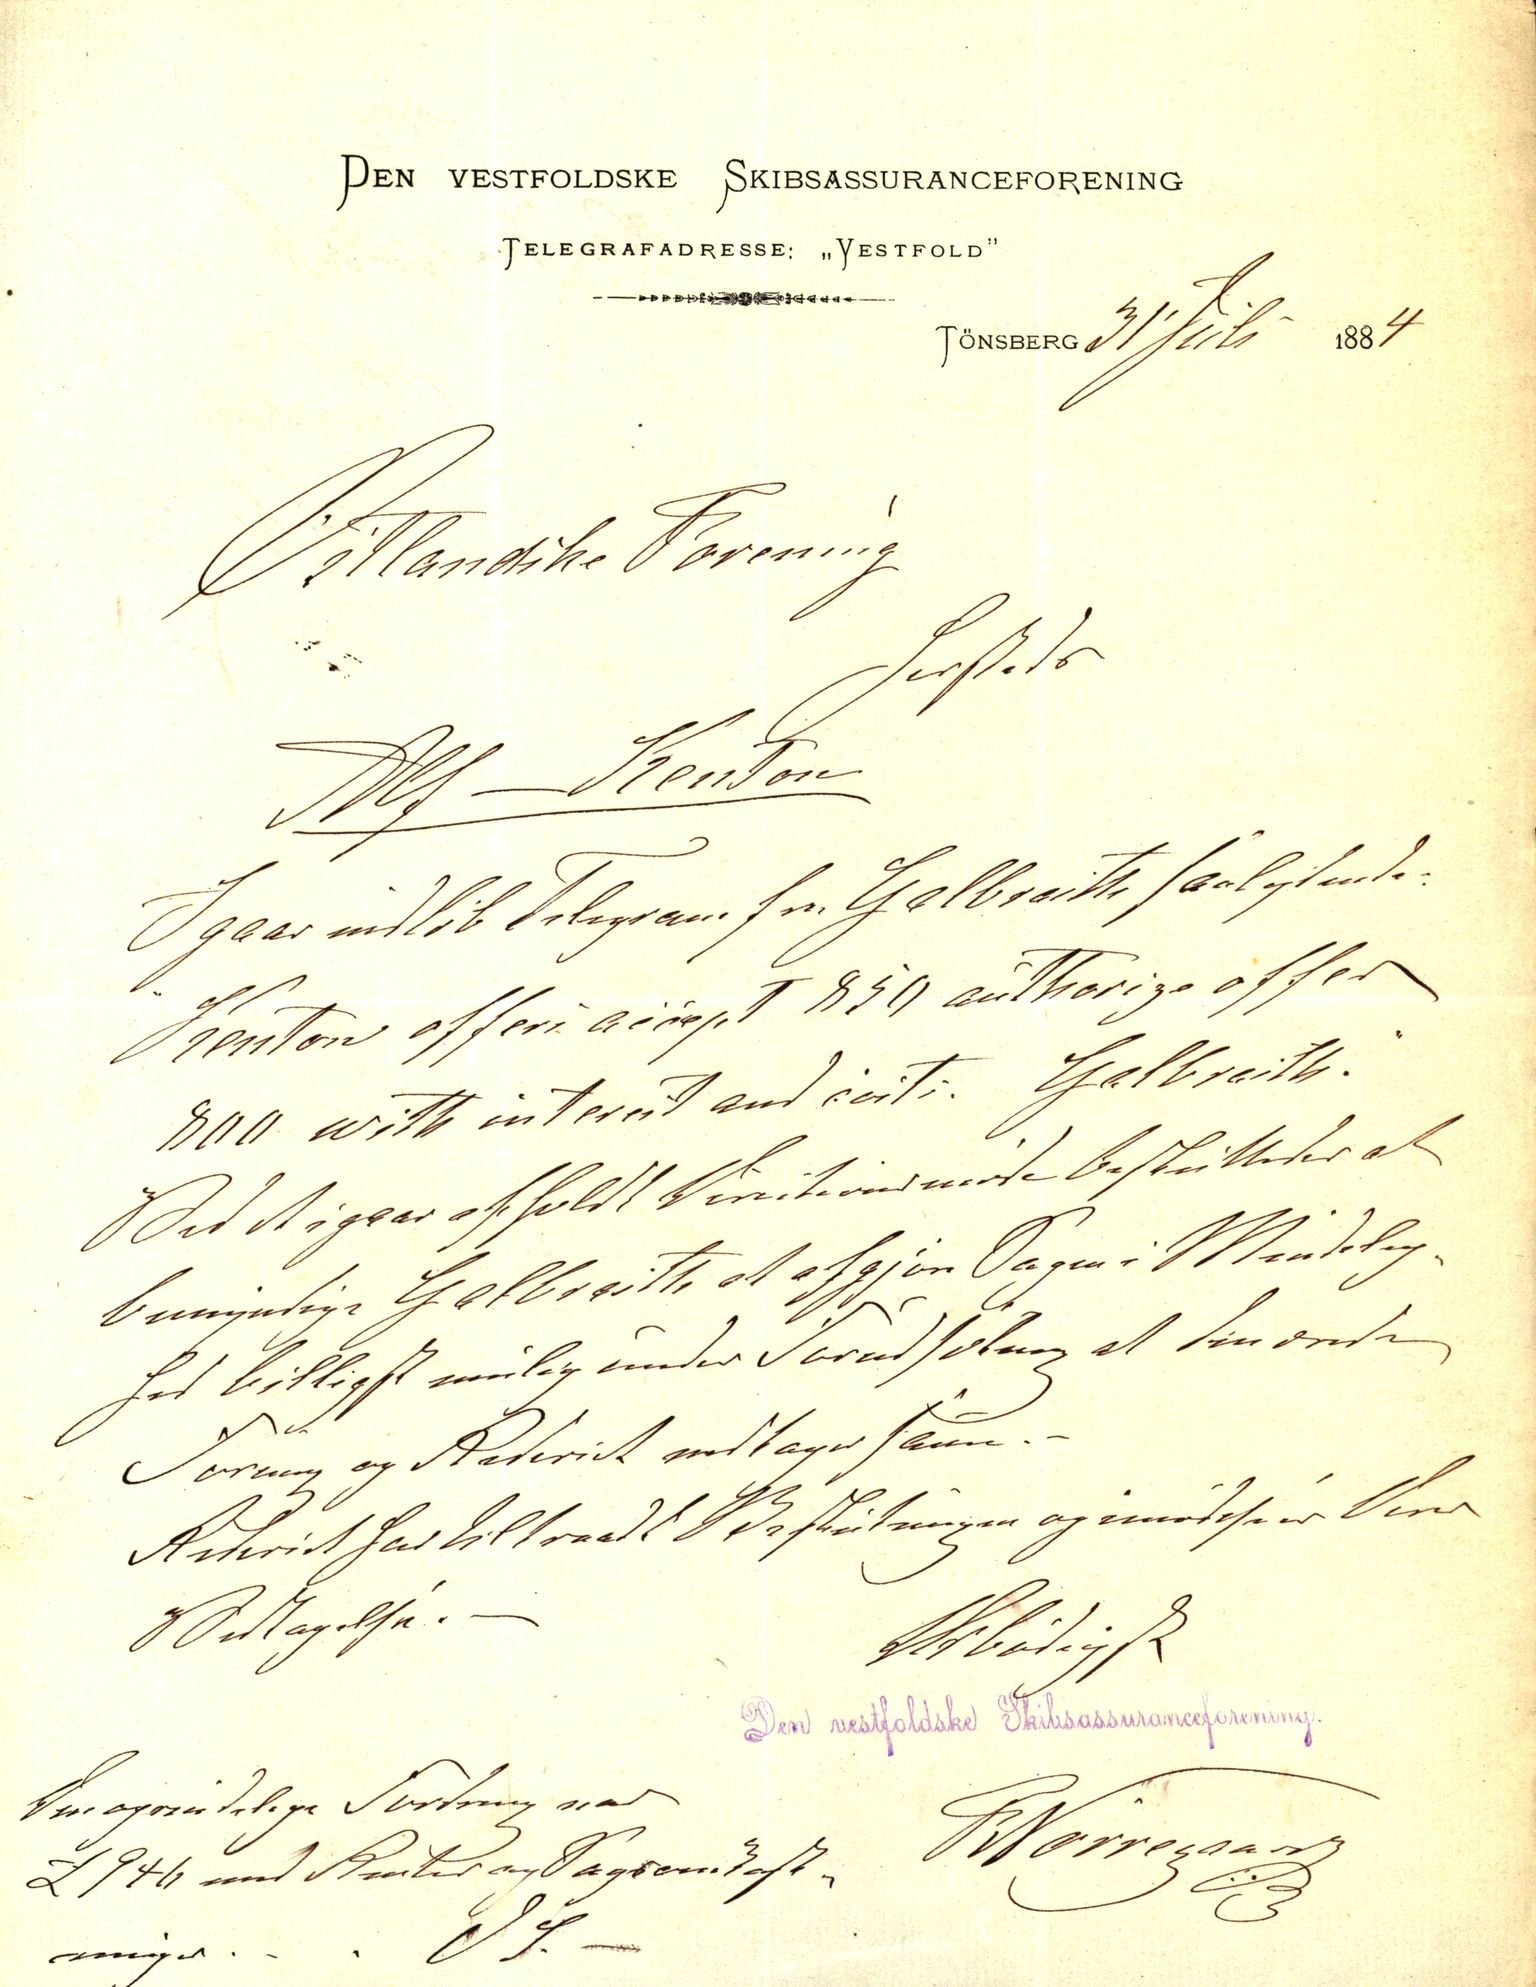 Den vestfoldske Skibsassuranceforening
Telegrafadresse: „Vestfold”
Tönsberg 31 Juli 1884
Östlandske Forening
Hersteds
Alf – Kenton
Igaar indløb Telegram fra Galbraith saalydende:
"Kenton offers accept 850 authorize offer
800 with interest and costs. Galbraith."
Ved et igaar afholdt Directionsmøde besluttedes at
bemyndige Galbraith at afgjøre Sagen i Mindelig-
hed billigst mulig under Forudsætning at den ærede
Forening og Rederiet vedtager samme. –
Rederiet har tiltraadt Beslutningen og imødeser Deres
Vedtagelse. –
Ærbødigst
Den vestfoldske Skibsassuranceforening.
F. Nörregaard
Den oprindelige Fordring var
£ 940 med Renter og Sagsomkost-
ninger . - .
D S. –